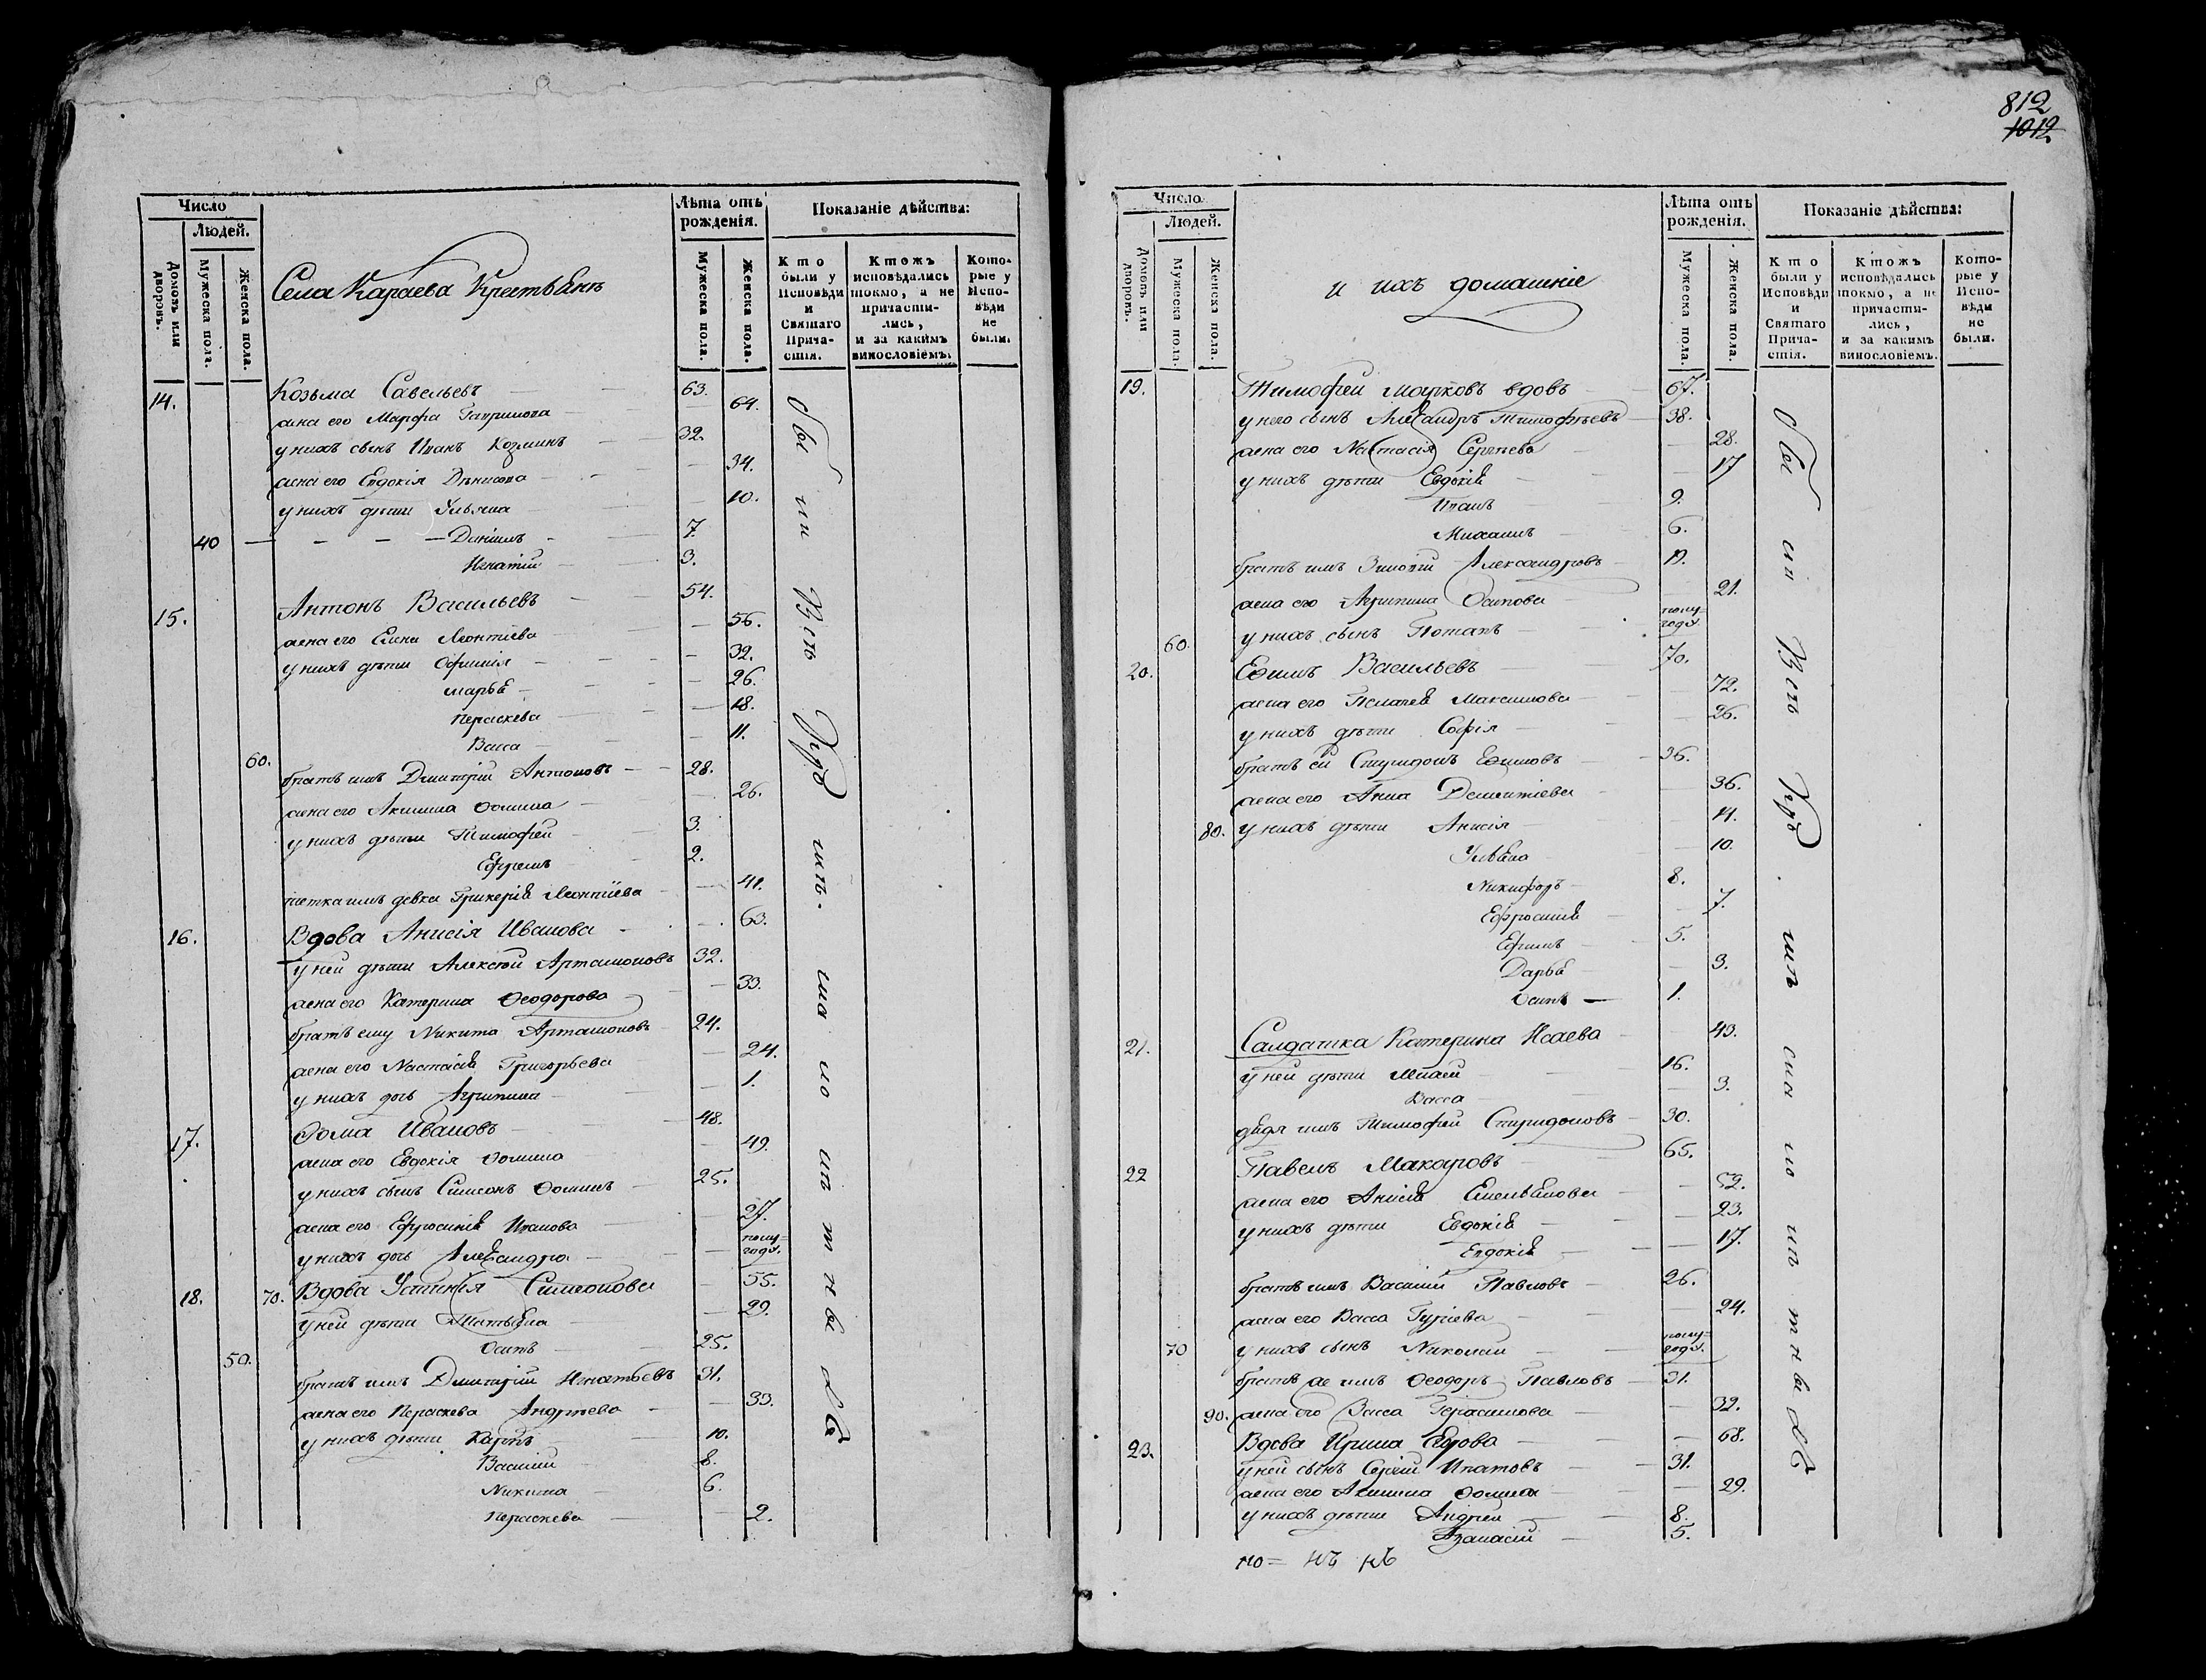 812
1012
Число
Людей.
Домовъ или дворовъ.
Мужеска пола.
Женска пола.
Села Караева Крестьянъ
Лѣта отъ рожденія.
Мужеска пола.
Женска пола.
Показаніе дѣйства:
Кто были у Исповѣди и Святаго Причастія.
Ктожъ исповѣдались токмо, а не причастились, и за какимъ винословіемъ.
Которые у Исповѣди не были.
14. Козьма Савельевъ 63.
жена его Марфа 64.
у нихъ сынъ Иванъ Козминъ 32.
жена его Евдокія Денисова 34.
у нихъ дѣти Ульяна 10.
40 Даніилъ 7.
Игнатій 3.
15. Антонъ Васильевъ 54.
жена его Елена Леонтіева 56.
у нихъ дѣти 32.
Марья 26.
Параскева 18.
Васса 11.
60.
братъ имъ Дмитрій Антоновъ 28.
жена его Акилина Ѳомина 26.
у нихъ дѣти Тимофей 3.
Ефремъ 2.
тетка имъ девка Гликерія Леонтіева 41.
16. Вдова Анисія Иванова 63.
у ней дѣти Алексѣй Артамоновъ 32.
жена его Катерина Ѳеодорова 33.
братъ ему Никита Артамоновъ 24.
жена его Настасія Григорьева 24.
у нихъ дочь Агрипина 1.
17. Ѳома Ивановъ 48.
жена его Евдокія Ѳомина 49.
у нихъ сынъ Симеонъ Ѳоминъ 25.
жена его Ефросинія Иванова 27.
у нихъ дочь Александра полугода.
18. 70. Вдова Устинія Симеонова 55.
у ней дѣти Татьяна 29.
50. Осипъ 25.
братъ имъ Дмитрій Игнатьевъ 31.
жена его Параскева Андреева 33.
у нихъ дѣти Карпъ 10.
Василій 8.
Никита 6.
Параскева 2.
Число
Людей.
Домовъ или дворовъ.
Мужеска пола.
Женска пола.
и ихъ домашніе
Лѣта отъ рожденія.
Мужеска пола.
Женска пола.
Показаніе дѣйства:
Кто были у Исповѣди и Святаго Причастія.
Ктожъ исповѣдались токмо, а не причастились, и за какимъ винословіемъ.
Которые у Исповѣди не были.
19. Тимофей Марковъ вдовъ 67.
у него сынъ Александръ Тимофѣевъ 38.
жена его Настасія Сергѣева 28.
у нихъ дѣти Евдокія 17
Иванъ 9.
Михаилъ 6.
братъ имъ Александровъ 19.
жена его Агрипина Осипова 21.
60. у нихъ сынъ Потапъ полугода.
20. Ефимъ Васильевъ 70.
жена его Пелагея Максимова 72.
у нихъ дѣти Софія 26.
братъ ей Спиридонъ Ефимовъ 36.
жена его Анна Дементіева 36.
80. у нихъ дѣти Анисія 11.
Ульяна 10.
Никифоръ 8.
Ефросинія 7.
Ефимъ 5.
Дарья 3.
Осипъ 1.
21. Салдатка Катерина Исаева 43.
у ней дѣти 16.
Васса 3.
дядя имъ Тимофей Спиридоновъ 30.
22 Павелъ Макаровъ 65.
жена его Анисія Емельянова 52.
у нихъ дѣти Евдокія 23.
Евдокія 17.
братъ имъ Василій Павловъ 26.
жена его Васса Гуріева 24.
70 у нихъ сынъ Николай полугода.
братъ же имъ Ѳеодоръ Павловъ 31.
90. жена его Васса Герасимова 32.
23. Вдова Ирина Егорова 68.
у ней сынъ Сергій Ипатовъ 31.
жена его Акилина Ѳомина 29.
у нихъ дѣти Андрей 8.
Аѳанасій 5.